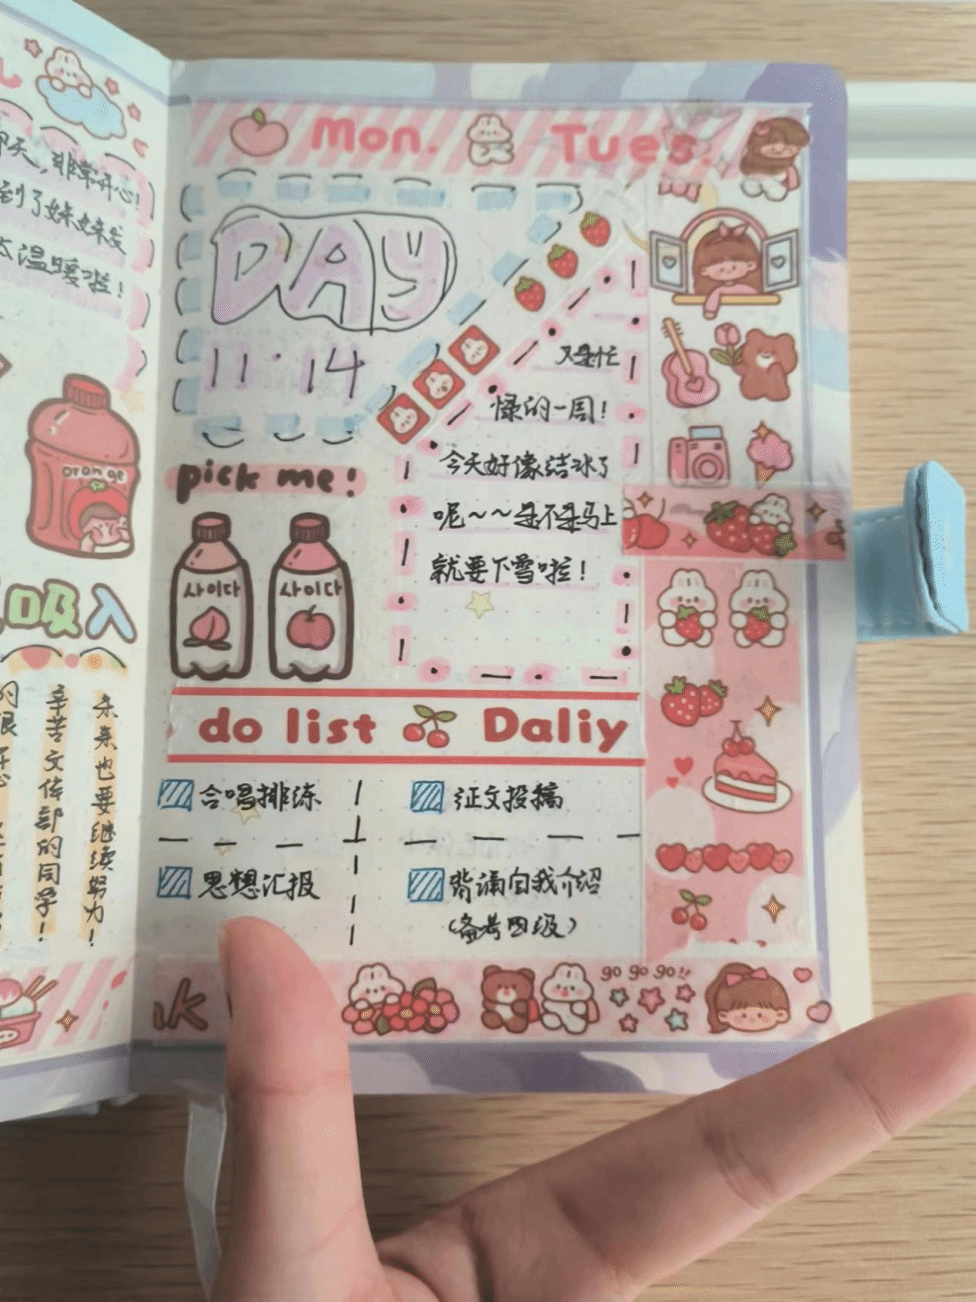 非常开心!
到了妹妹发
太温暖啦!
orange
吸入
辛苦文体部的同学!
未来也要继续努力!
Mon.
Tues.
DAY
11·14
又是忙
碌的一周!
今天好像结冰了
呢~~是不是马上
就要下雪啦!
pick me!
사이다
사이다
do list
Daliy
合唱排练
征文投稿
思想汇报
背诵自我介绍
(备考四级)
go go go!!